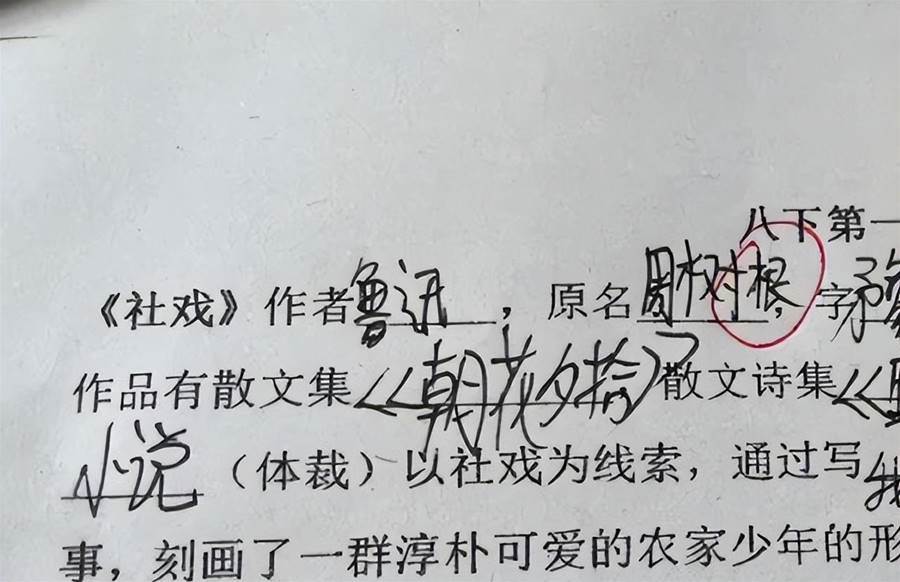 八下第一
《社戏》作者鲁迅，原名周树根，字
作品有散文集《朝花夕拾》散文诗集《
小说（体裁）以社戏为线索，通过写我
事，刻画了一群淳朴可爱的农家少年的形